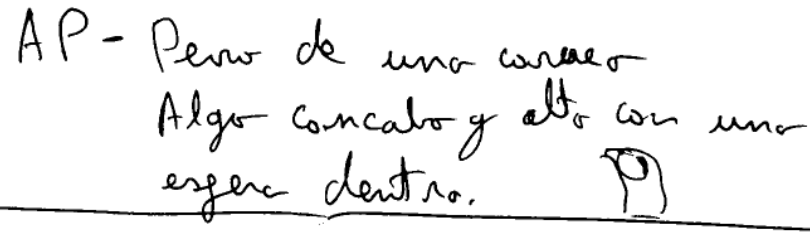 AP - de una
Algo concabo y alto con una
esfera dentro.